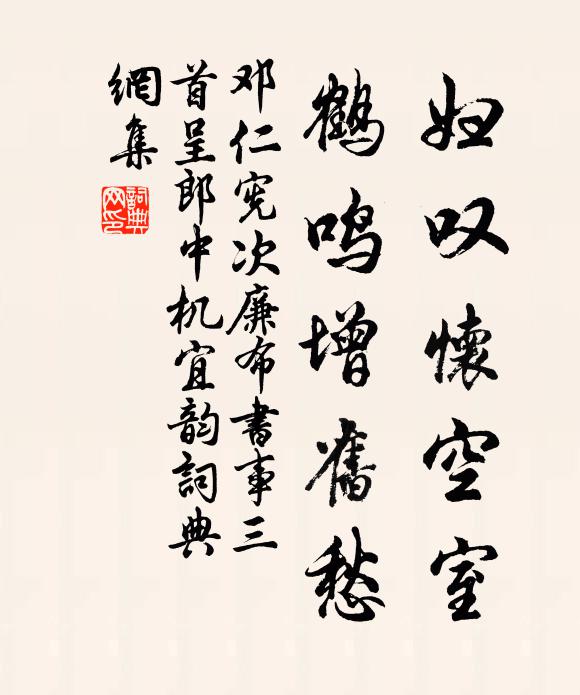 妇叹懷空室
鶴鸣增舊愁
邓仁宪次廉布書事三
首呈郎中机宜韵詞典
網集
詞典网印